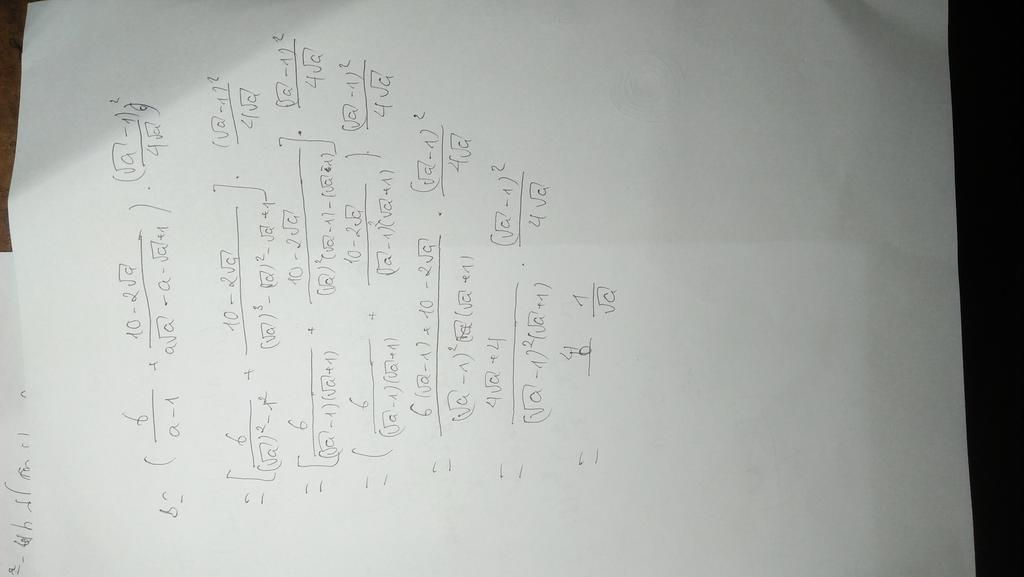 B = ( 6/(a-1) + (10-2√a)/(a√a-a-√a+1) ) . (√a-1)²/(4√a)
= [ 6/((√a)²-1²) + (10-2√a)/((√a)³-(√a)²-√a+1) ] . (√a-1)²/(4√a)
= [ 6/((√a-1)(√a+1)) + (10-2√a)/((√a)²(√a-1)-(√a-1)) ] . (√a-1)²/(4√a)
= ( 6/((√a-1)(√a+1)) + (10-2√a)/((√a-1)²(√a+1)) ) . (√a-1)²/(4√a)
= (6(√a-1)+10-2√a)/((√a-1)²(√a+1)) . (√a-1)²/(4√a)
= (4√a+4)/((√a-1)²(√a+1)) . (√a-1)²/(4√a)
= 1/√a